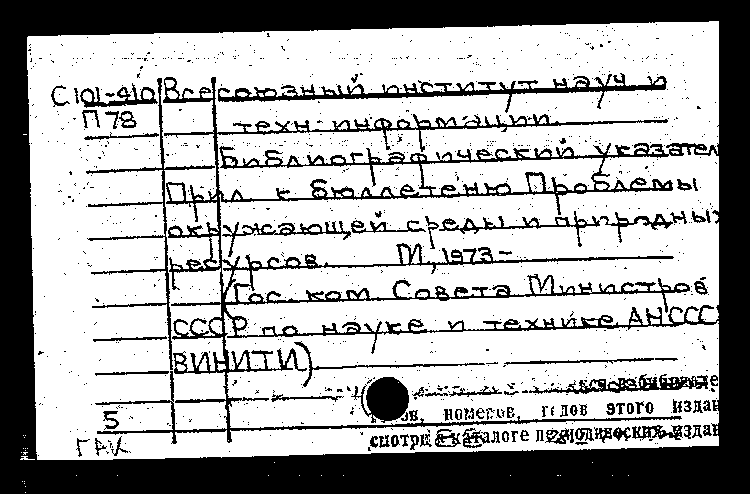 С101-410 Всесоюзный институт науч и
П78 техн. информации.
Библиографический указател
Прил. к бюллетеню Проблемы
окружающей среды и природных
ресурсов. М., 1973-
(Гос. ком. Совета Министров
СССР по науке и технике АН СССР
ВИНИТИ)
номеров, годов этого издан
5
смотри в каталоге периодических издан
ГАК